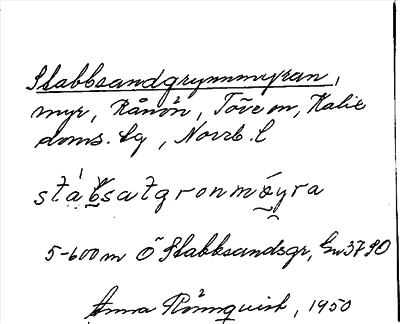 Stabbsandgrynnmyran,
myr, Rånön, Töre sn, Kalix
doms. lg, Norrb. l
stábsatgronmøyra
5-600 m Ö Stabbsandsgr, Gw 37 90
Anna Rönnquist, 1950